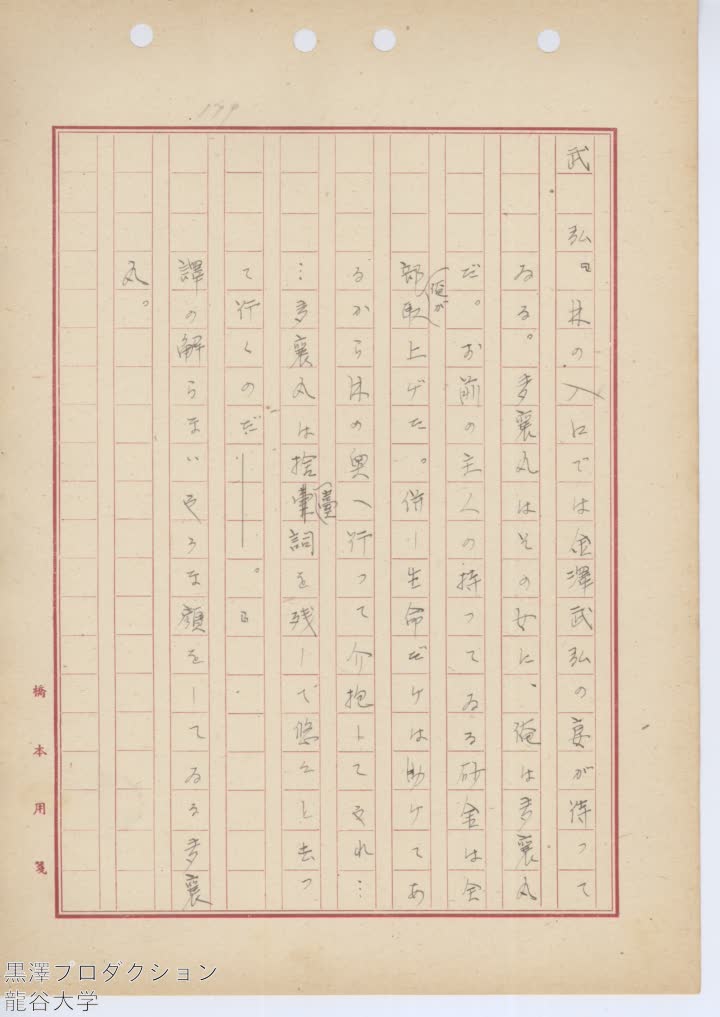 武弘「林の入口では金澤武弘の妻が待って
ゐる。多襄丸はその女に、俺は多襄丸
だ。お前の主人の持ってゐる砂金は全
部俺が取上げた。併し生命だけは助けてあ
るから林の奥へ行って介抱してやれ…
…多襄丸は捨臺詞を残して悠々と去っ
て行くのだ――。」
譯の解らないやうな顔をしてゐる多襄
丸。
橋本用箋
黒澤プロダクション
龍谷大学